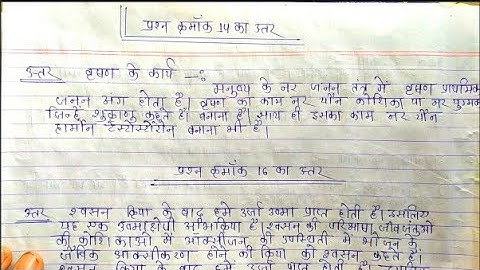 प्रश्न क्रमाँक 14 का उत्तर
उत्तर वृषण के कार्य —:
मनुष्य के नर जनन तंत्र में वृषण प्राथमिक
जनन अंग होता है। वृषण का काम नर यौन कोशिका या नर युग्मक
जिन्हें शुक्राणु कहते हैं। बनाना है। साथ ही इसका काम नर यौन
हार्मोन टेस्टोस्टेरोन बनाना भी है।
प्रश्न क्रमाँक 16 का उत्तर
उत्तर श्वसन क्रिया के बाद हमे उर्जा उष्मा प्राप्त होती है। इसलिए
यह एक उष्माक्षेपी अभिक्रिया है। श्वसन की परिभाषा जीवजंतुओ
की कोशिकाओं में आक्सीजन की उपस्थिती में भोजन के
जैविक आक्सीकरण होने की क्रिया को श्वसन कहते हैं।
श्वसन क्रिया के बाद हमे उर्जा प्राप्त होती है।